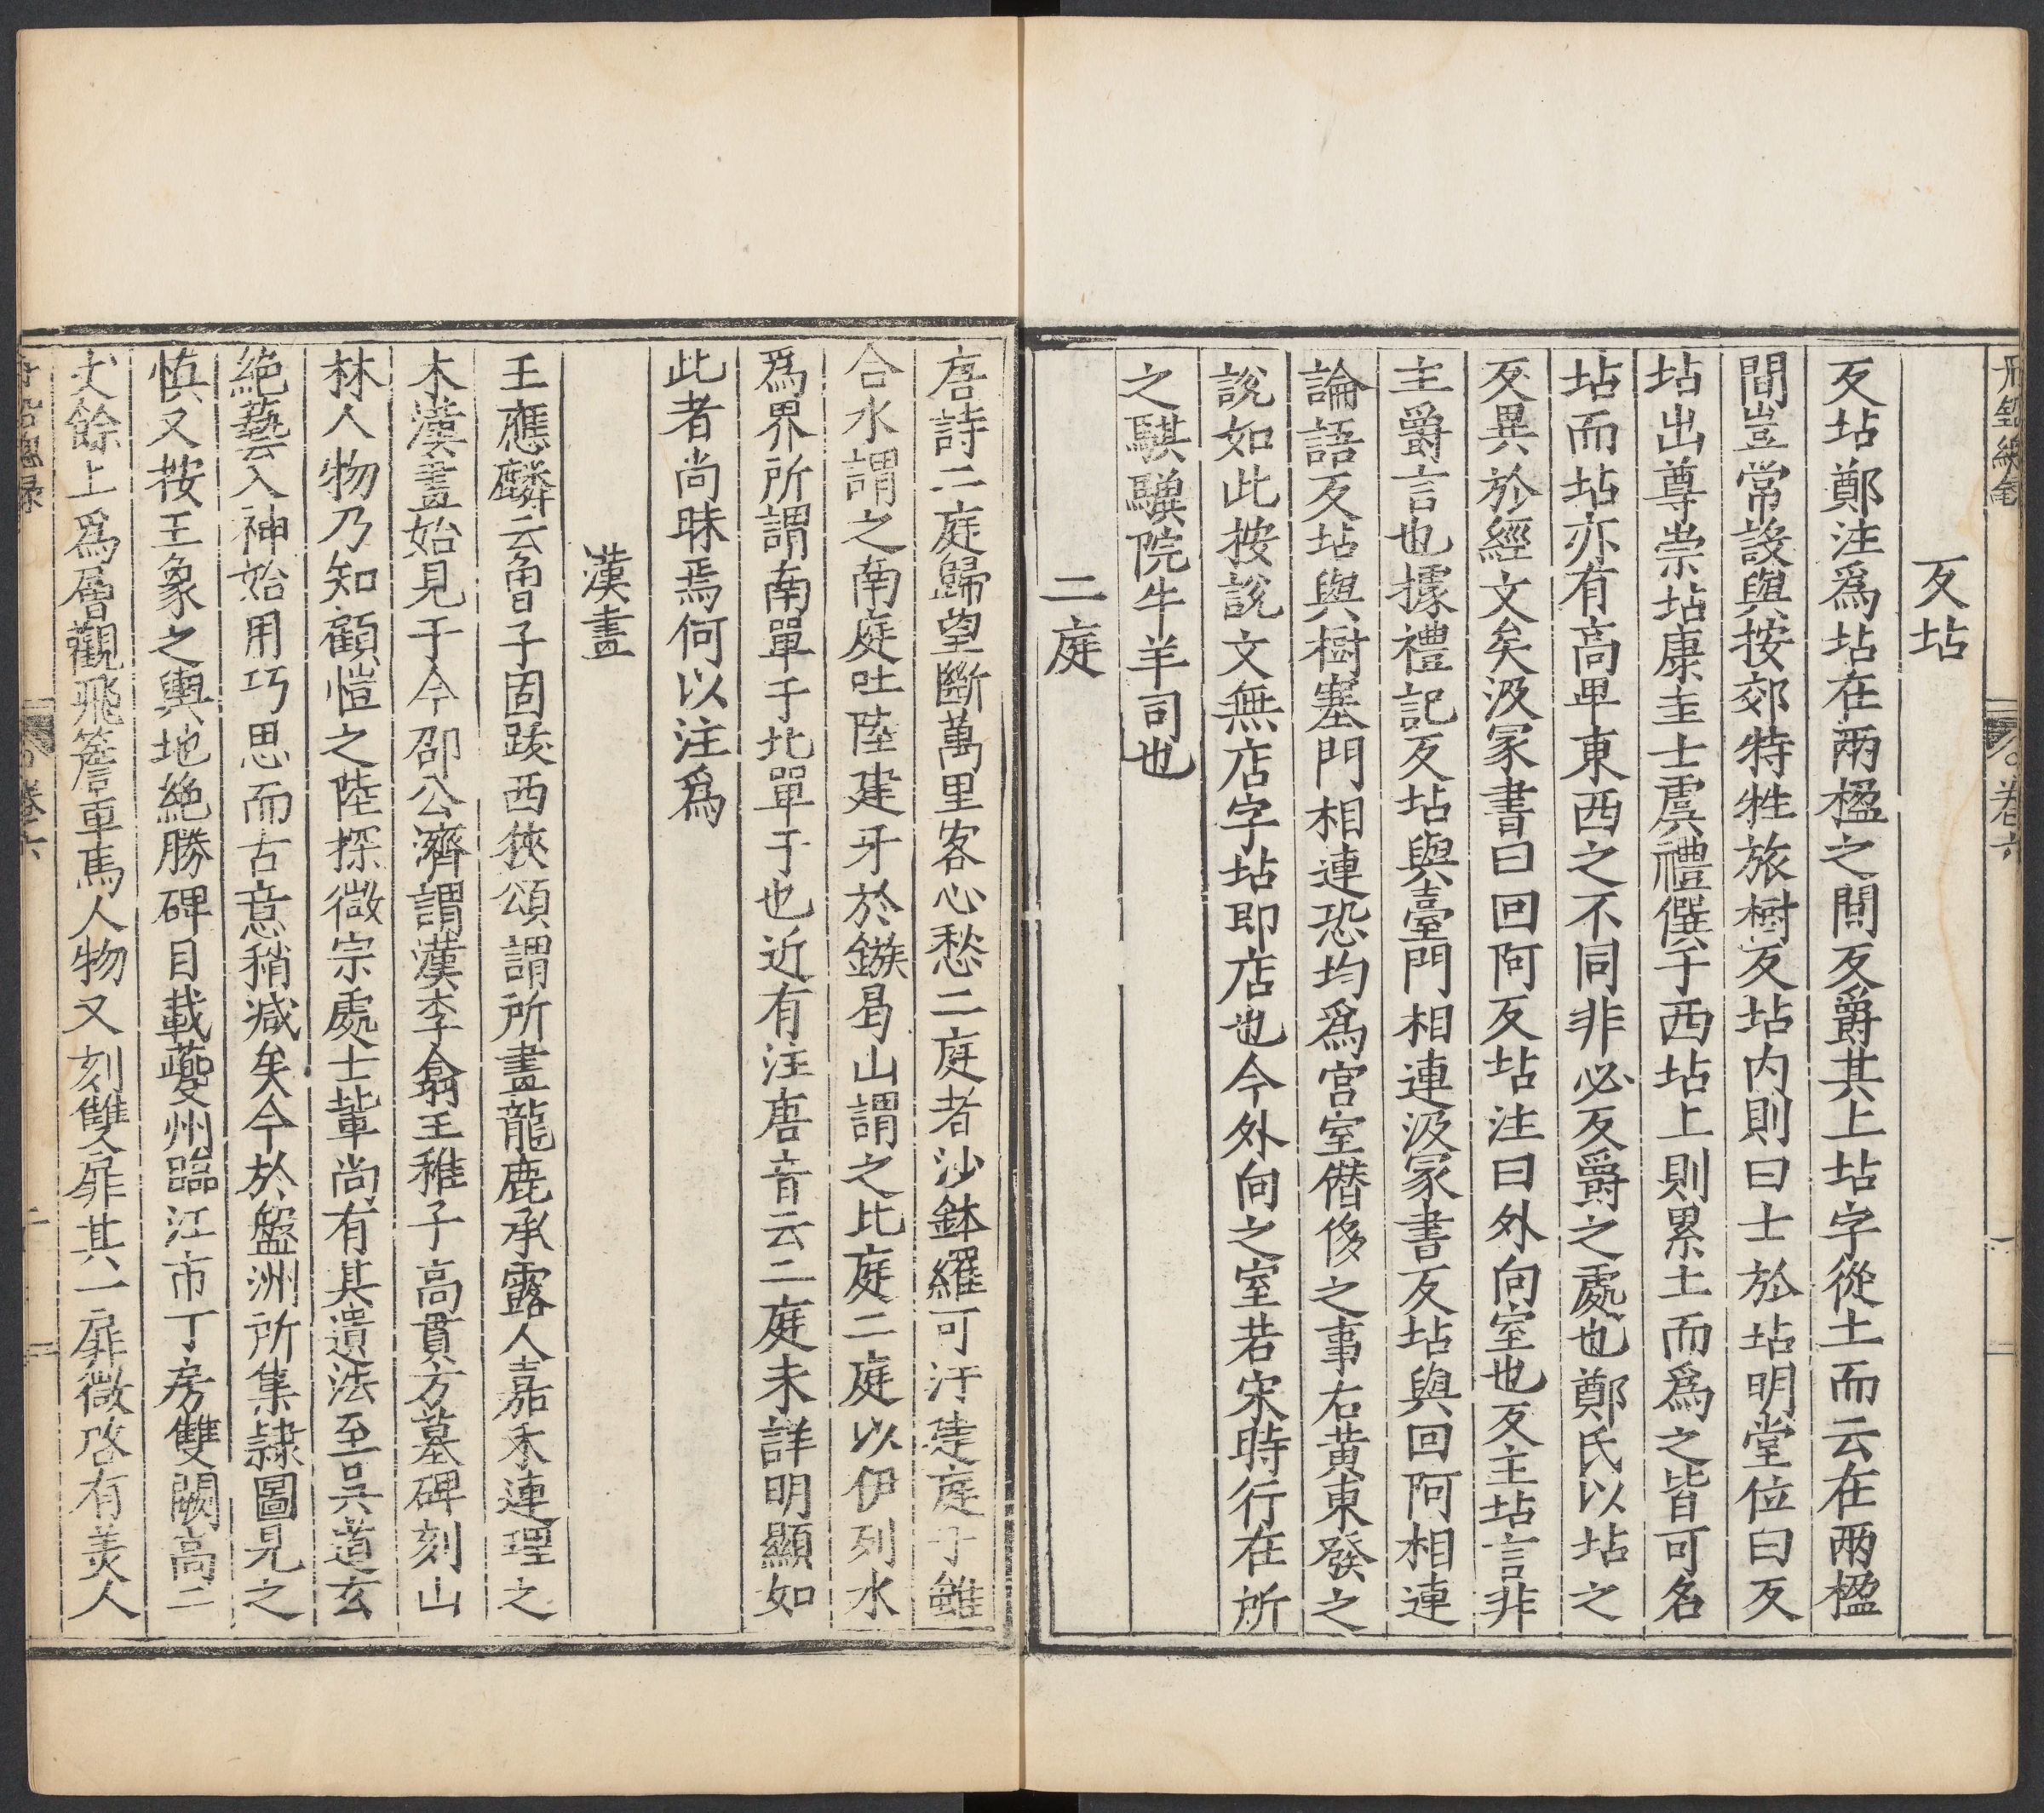 卷六
反坫
反坫鄭注爲坫在兩楹之間反爵其上坫字從土而云在兩楹
間豈常設與按郊特牲旅樹反坫内則曰士於坫明堂位曰反
坫出尊崇坫康圭士虞禮僎于西坫上則累土而爲之皆可名
坫而坫亦有高卑東西之不同非必反爵之處也鄭氏以坫之
反異於經文矣汲冢書曰回阿反坫注曰外向室也反主坫言非
主爵言也據禮記反坫與臺門相連汲冢書反坫與回阿相連
論語反坫與樹塞門相連恐均爲宫室僭侈之事右黄東發之
說如此按說文無店字坫即店也今外向之室若宋時行在所
之騏驥院牛羊司也
二庭
唐詩二庭歸望斷萬里客心愁二庭者沙鉢羅可汗建庭于雖
合水謂之南庭吐陸建牙於鏃曷山謂之北庭二庭以伊列水
爲界所謂南單于北單于也近有注唐音云二庭未詳明顯如
此者尚昧焉何以注爲
漢畫
王應麟云曾子固跋西狹頌謂所畫龍鹿承露人嘉禾連理之
木漢畫始見于今邵公濟謂漢李翕王稚子高貫方墓碑刻山
林人物乃知顧愷之陸探微宗處士軰尚有其遺法至吳道玄
絕藝入神始用巧思而古意稍减矣今於盤洲所集隷圖見之
慎又按王象之輿地絕勝碑目載夔州臨江市丁房雙闕高二
丈餘上爲層觀飛簷車馬人物又刻雙扉其一扉微啓有美人
卷六